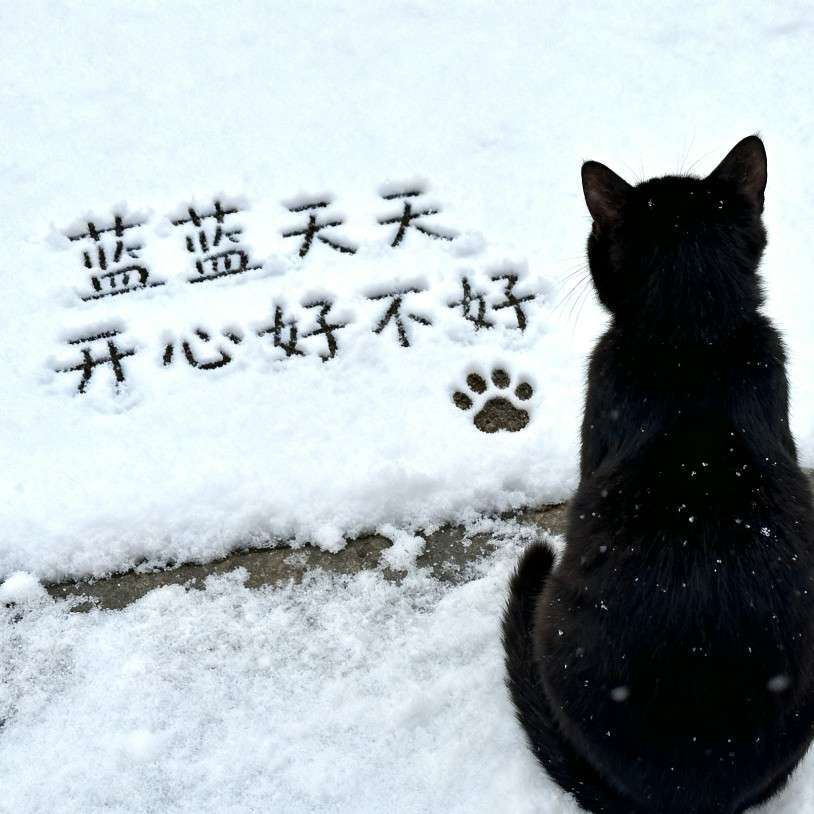 蓝蓝天天
开心好不好